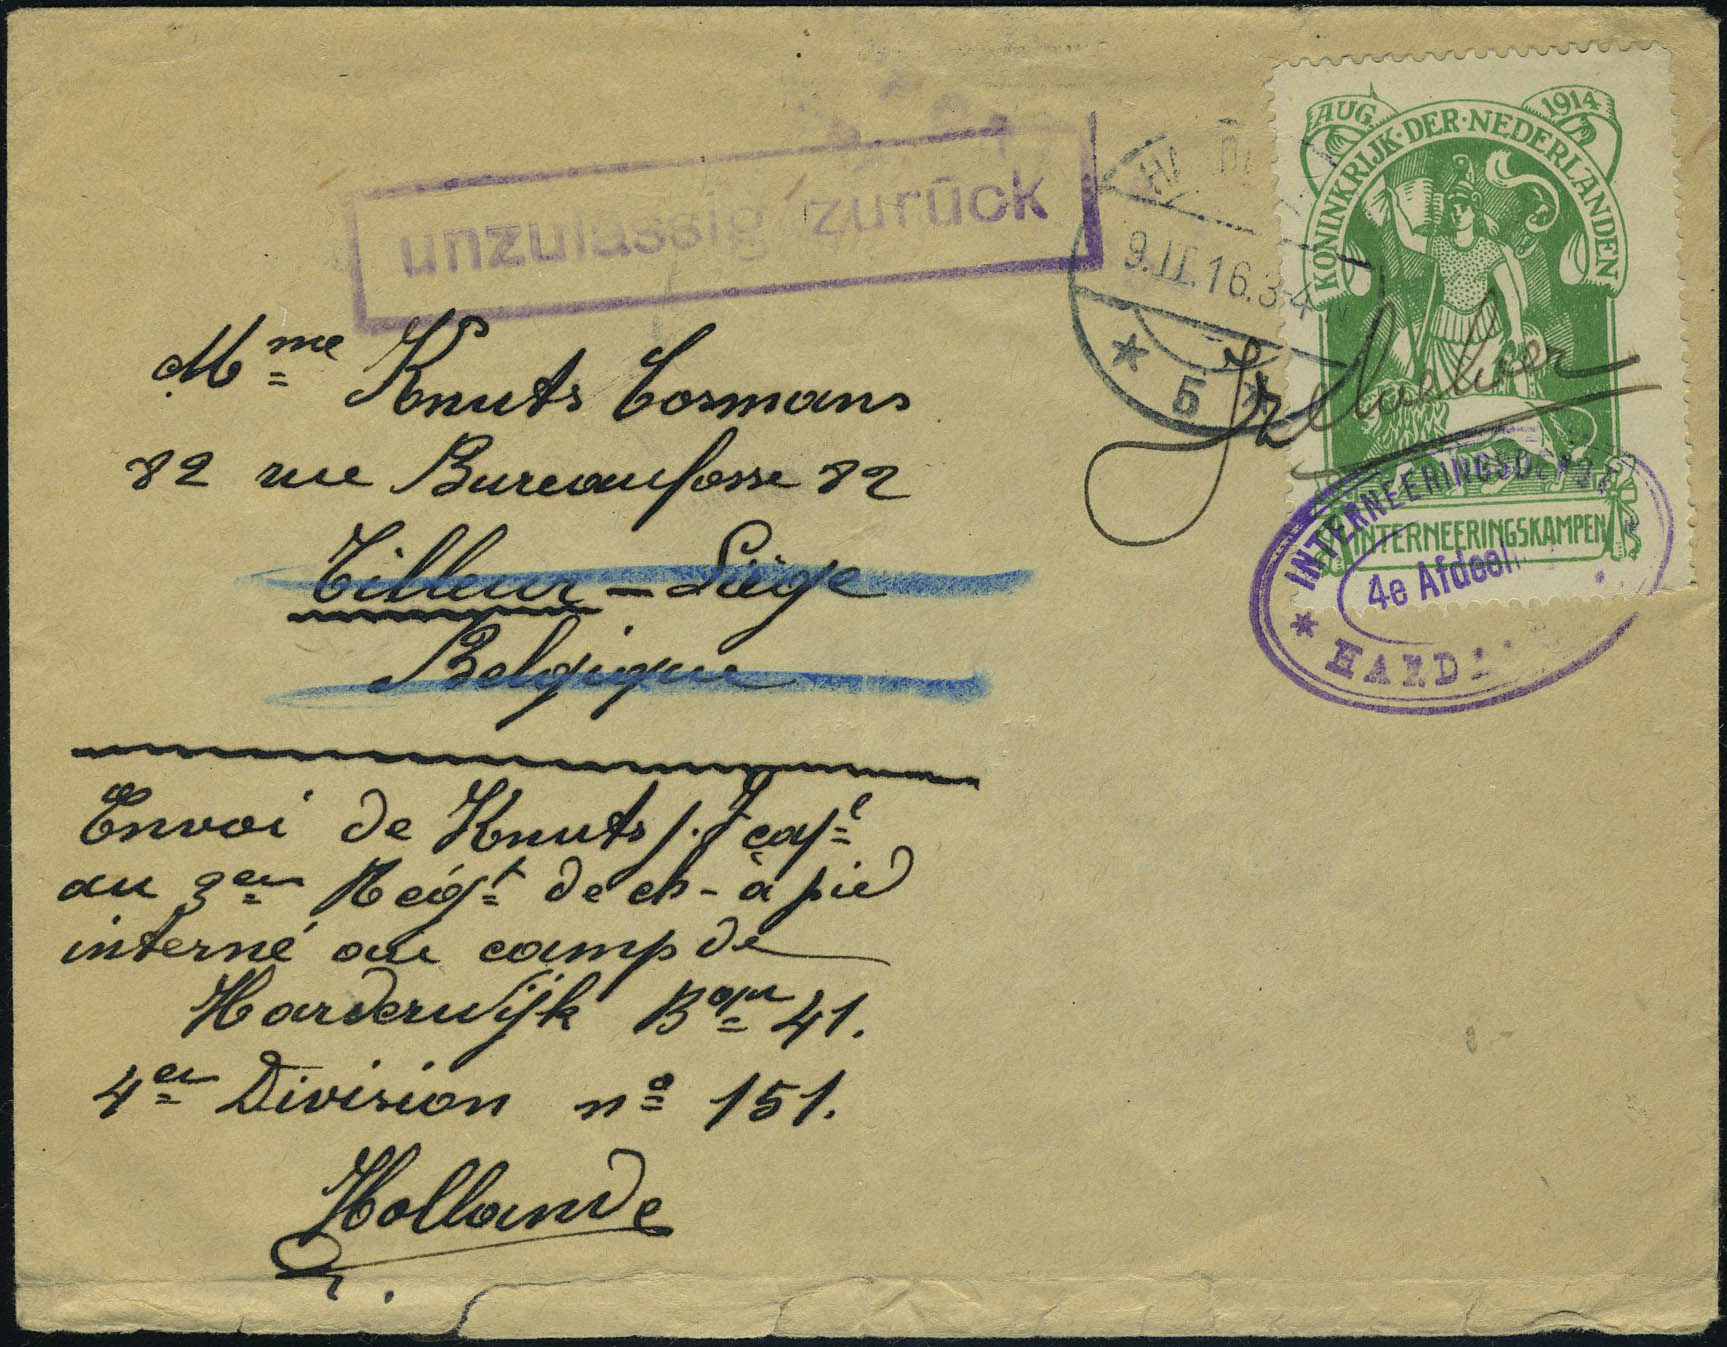 unzulässig zurück
9.II.16.3-4 N
* 5 *
AUG. 1914
KONINKRIJK·DER·NEDERLANDEN
INTERNEERINGSKAMPEN
INTERNEERINGSDEPOT
4e Afdeel
* HARD
Mme Knuts Cosmans
82 rue Bureaufosse 82
Tilleur – Liége
Belgique
Envoi de Knuts J. J capl
au 3em Regt de ch- à pied
interné au camp de
Harderwijk Baqu 41.
4em Division no 151.
Hollande